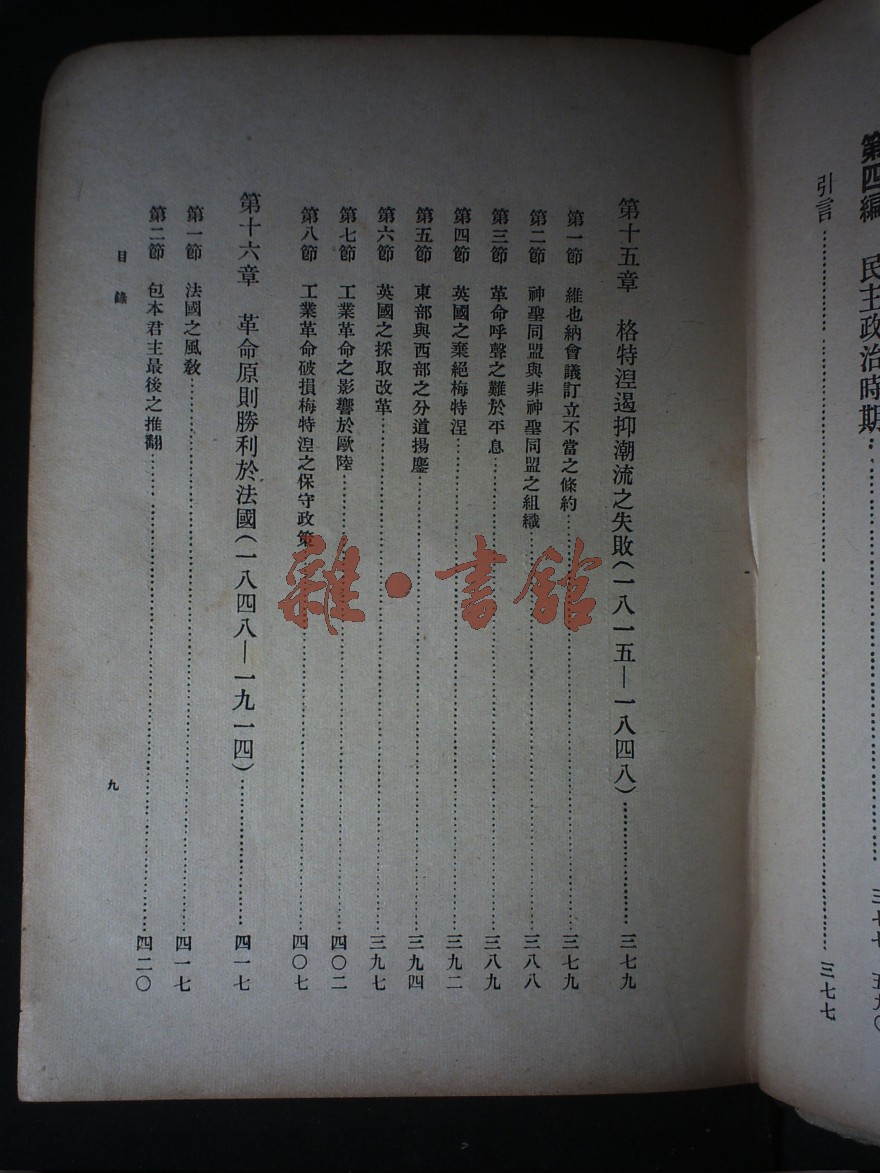 第四編　民主政治時期……三七七　五九〇
引言……三七七
第十五章　格特涅遏抑潮流之失敗（一八一五—一八四八）……三七九
第一節　維也納會議訂立不當之條約……三七九
第二節　神聖同盟與非神聖同盟之組織……三八八
第三節　革命呼聲之難於平息……三八九
第四節　英國之棄絕梅特涅……三九二
第五節　東部與西部之分道揚鑣……三九四
第六節　英國之採取改革……三九七
第七節　工業革命之影響於歐陸……四〇二
第八節　工業革命破損梅特涅之保守政策……四〇七
第十六章　革命原則勝利於法國（一八四八—一九一四）……四一七
第一節　法國之風敎……四一七
第二節　包本君主最後之推翻……四二〇
目錄
九
雜·書館